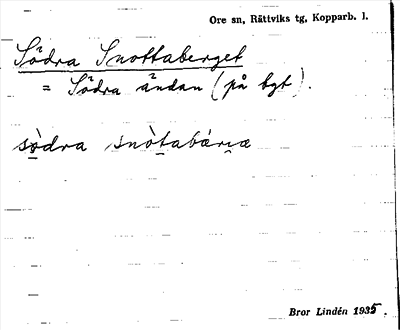 Ore sn, Rättviks tg, Kopparb. l.
Södra Snottaberget
= Södra ändan (på bgt).
sòdra snòtabárıæ
Bror Lindén 1935.